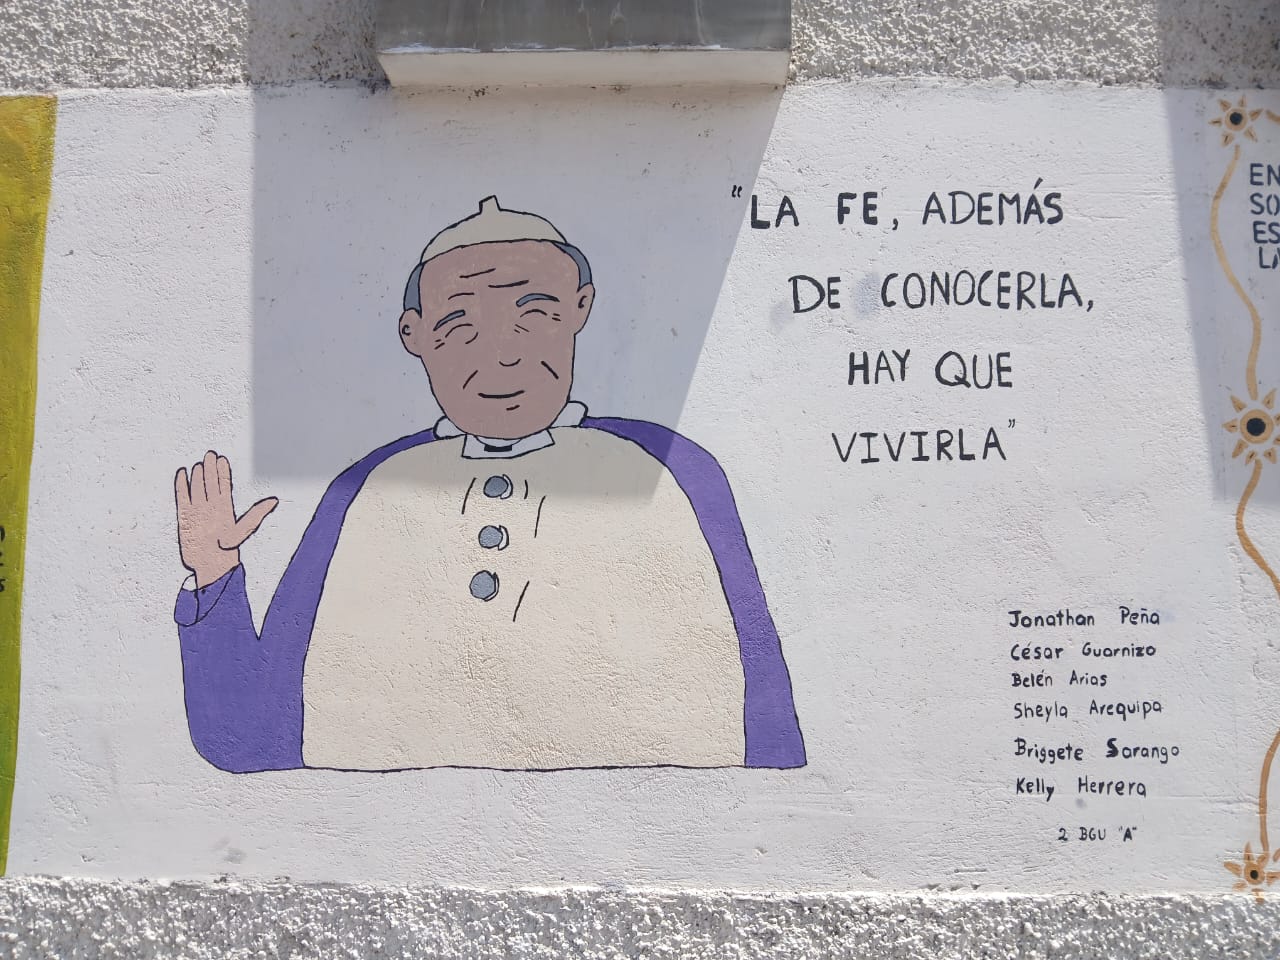 "LA FE, ADEMÁS
DE CONOCERLA,
HAY QUE
VIVIRLA"
Jonathan Peña
César Guarnizo
Belén Arias
Sheyla Arequipa
Briggete Sarango
Kelly Herrera
2 BGU "A"
EN
SO
ES
LA